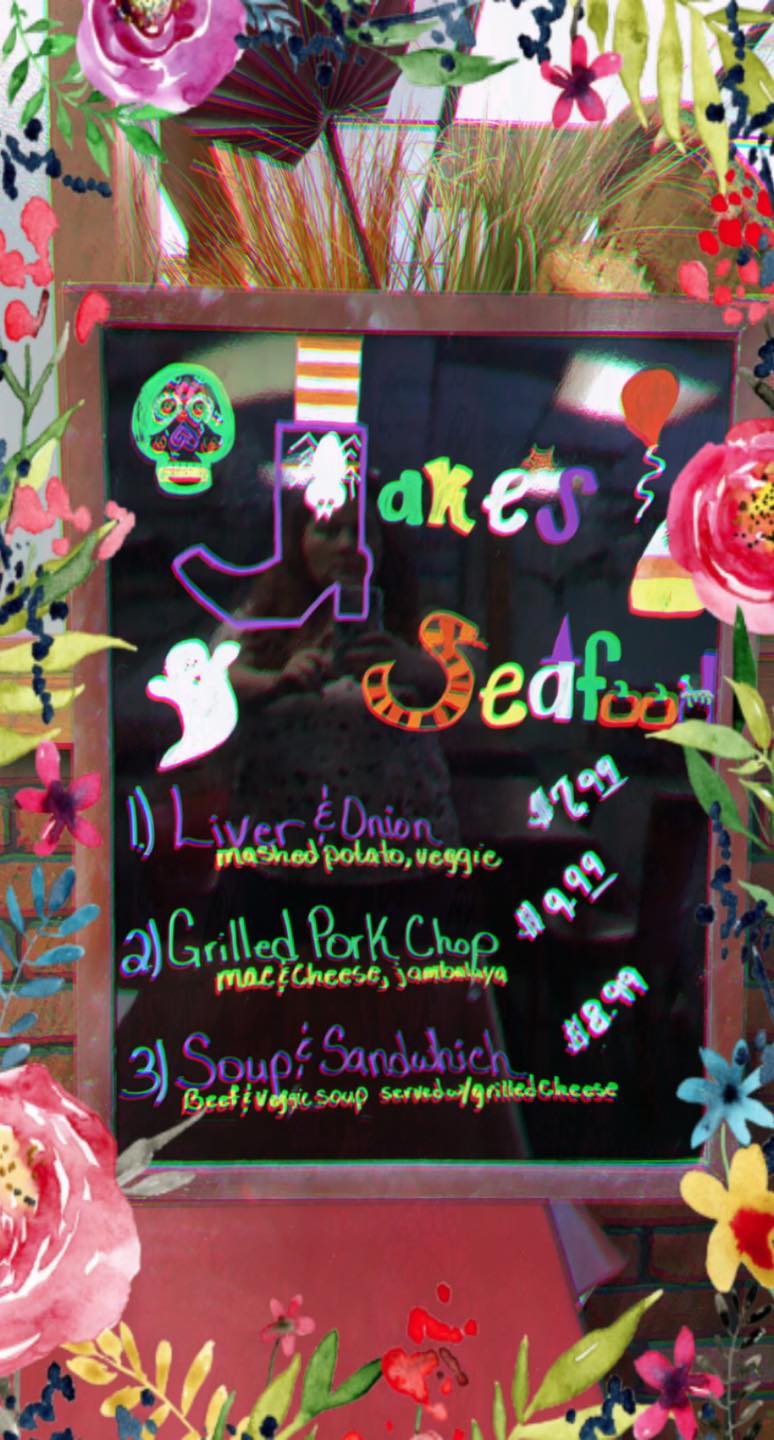 Jakes
Seafood
1.) Liver & Onion $7.99
mashed potato, veggie
2) Grilled Pork Chop $9.99
mac & Cheese, jambalaya
3) Soup & Sandwhich $8.99
Beef & Veggie soup served w/ grilled Cheese